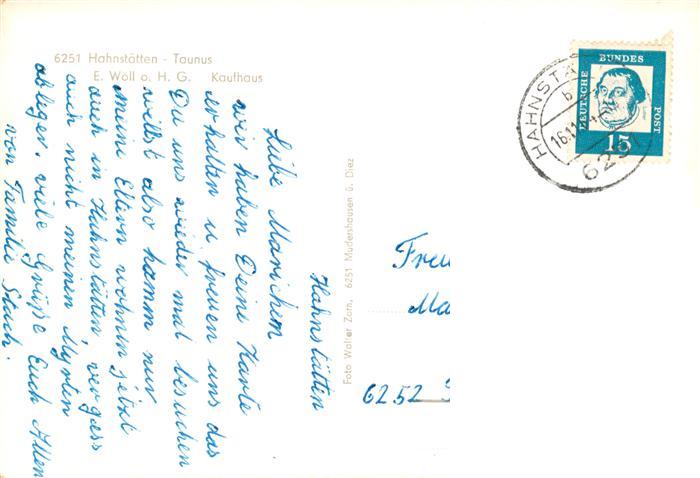 6251 Hahnstätten - Taunus
E. Woll o. H. G. Kaufhaus
Hahnstätten
Liebe Marichen
wir haben Deine Karte
erhalten u freuen uns das
Du uns wieder mal besuchen
willst also kamm nur
meine Eltern wohnen jetzt
auch in Hahnstätten, vergess
auch nicht meinen Myrten
ableger. viele Grüße Euch Allen
von Familie Stach.
Foto Walter Zorn, 6251 Mudershausen ü. Diez
DEUTSCHE
BUNDES
POST
15
HAHNSTÄ
b
16.11
6251
Frau
Ma
6252